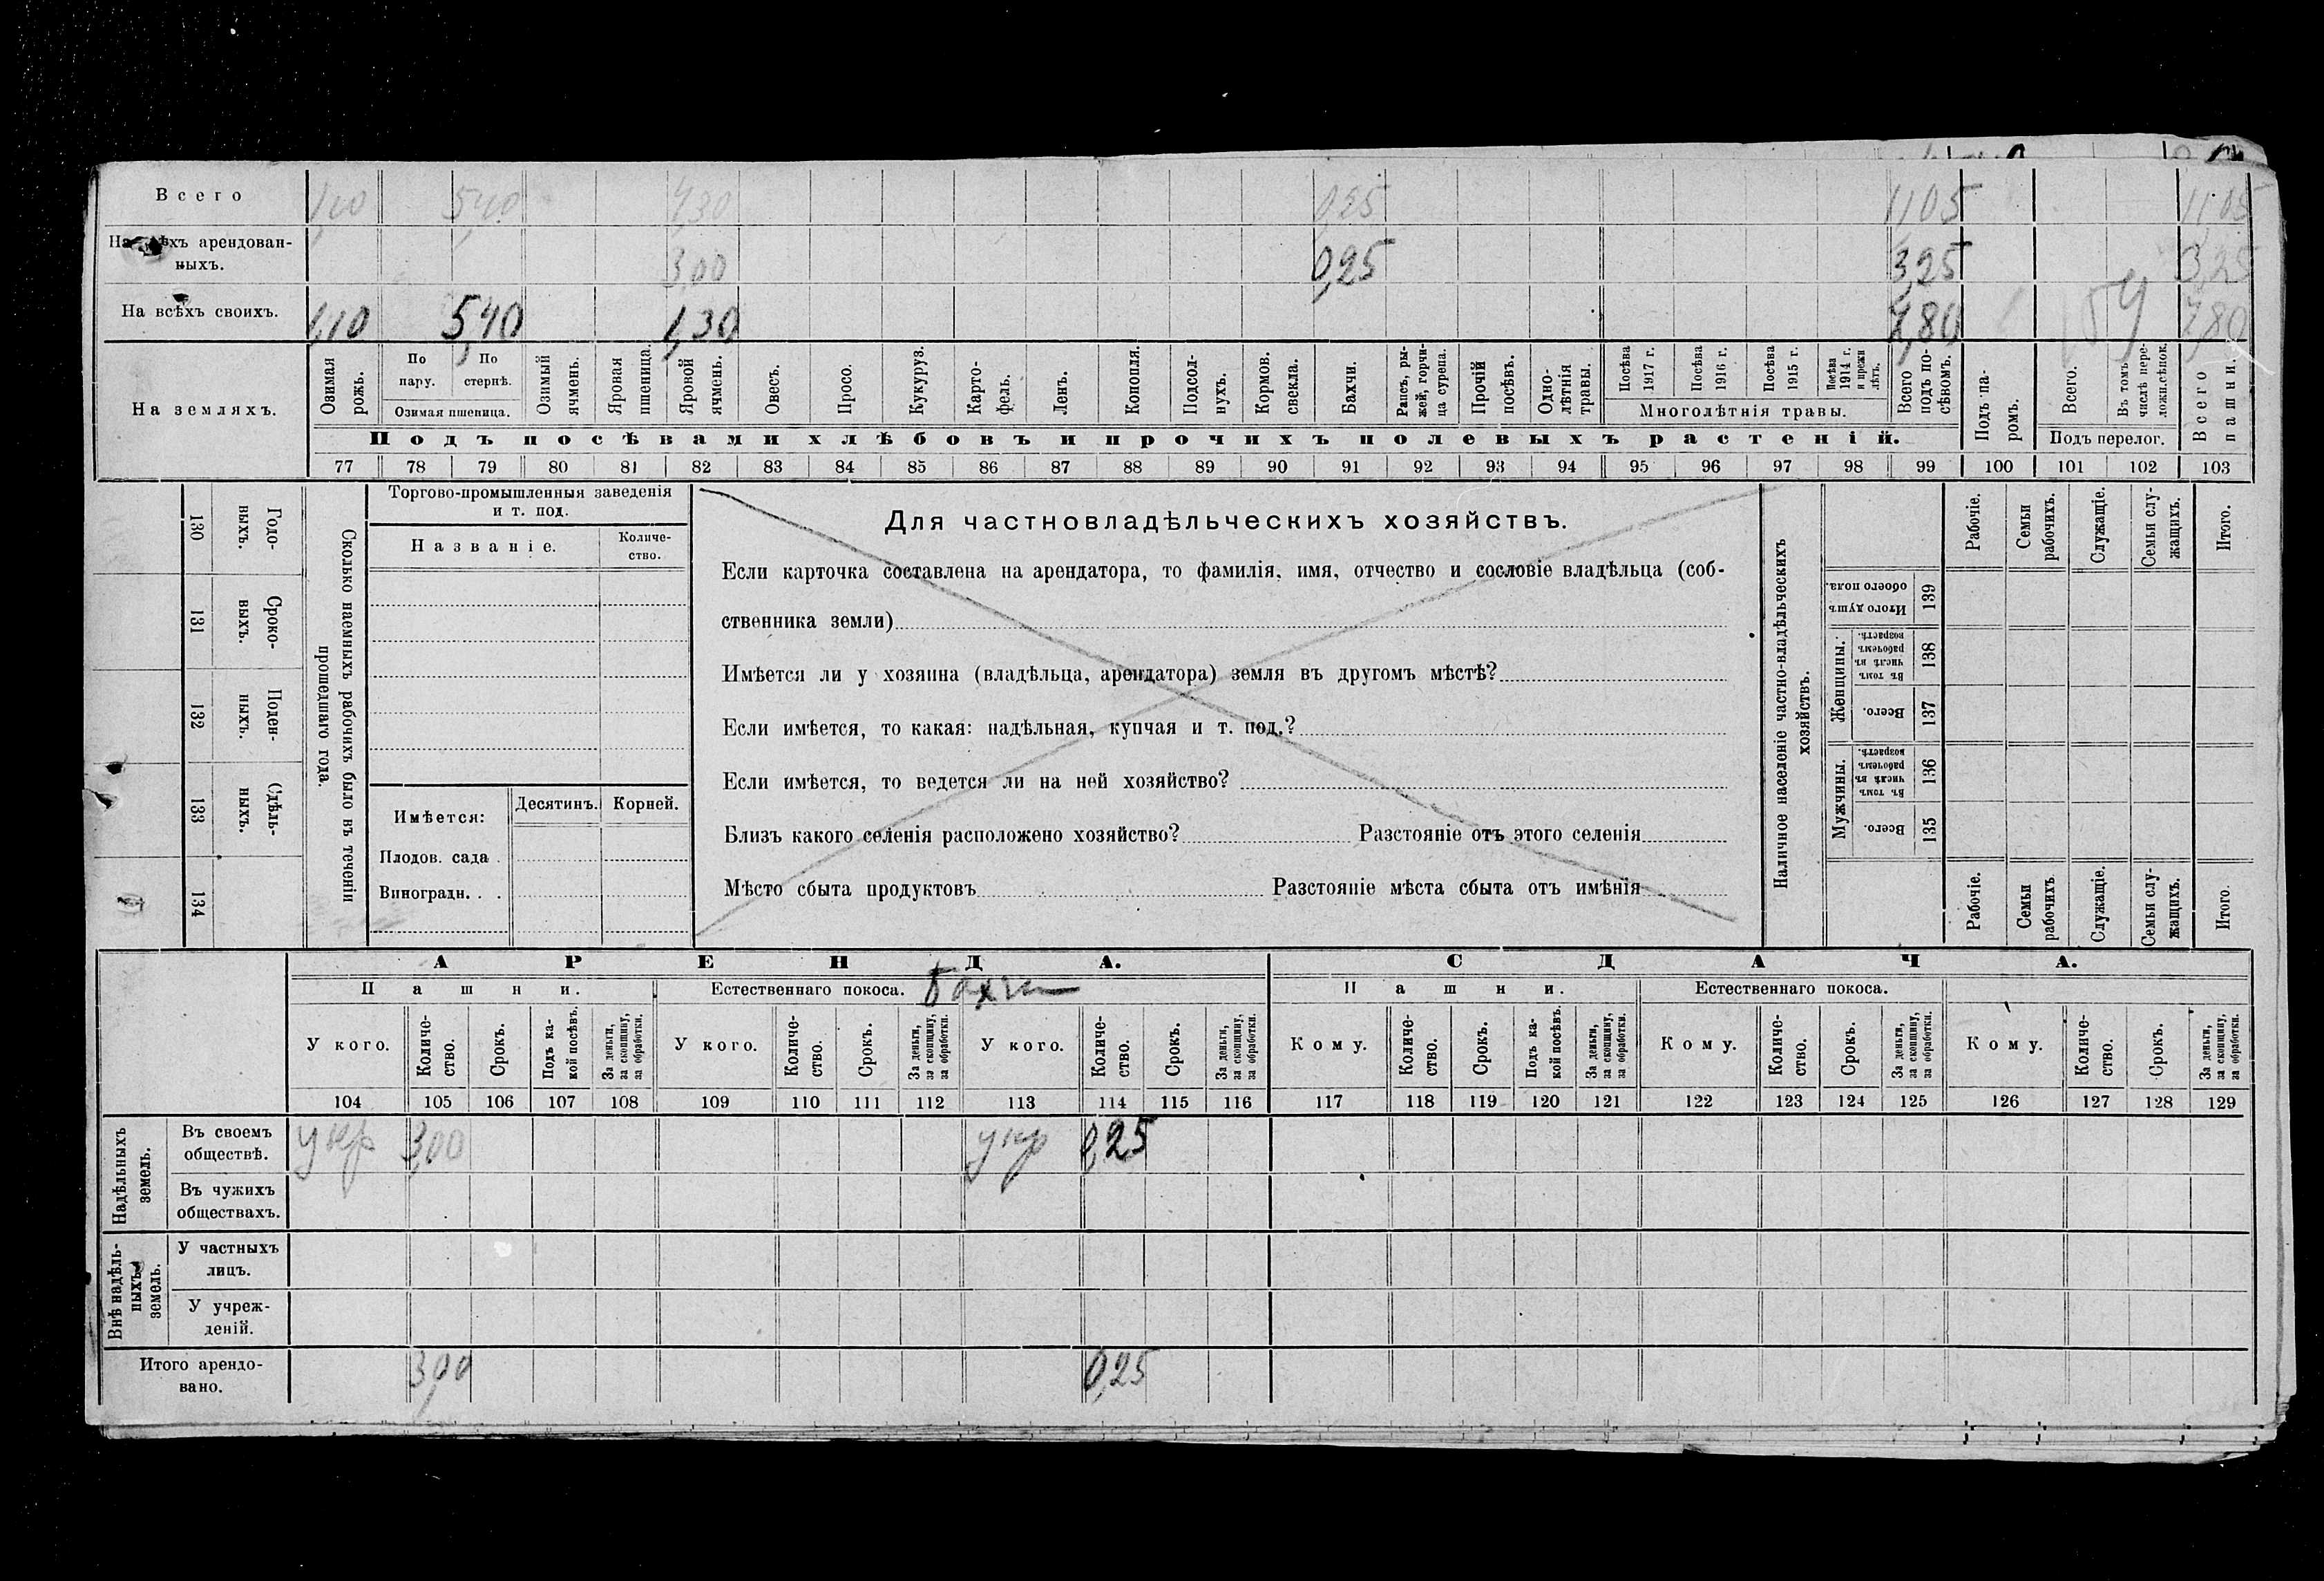 Всего 1,10 5,40 4,30 0,25 11,05 11,05
На всѣхъ арендован-
ныхъ. 3,00 0,25 3,25 3,25
На всѣхъ своихъ. 1,10 5,40 1,30 7,80 7,80
На земляхъ.
Озимая рожь.
По пару.
По стернѣ.
Озимая пшеница.
Озимый ячмень.
Яровая пшеница.
Яровой ячмень.
Овесъ.
Просо.
Кукуруз.
Карто-
фель.
Ленъ.
Конопля.
Подсол-
нухъ.
Кормов.
свекла.
Бахчи.
Рапсъ, ры-
жей, горчи-
ца сурепа.
Прочій
посѣвъ.
Одно-
лѣтнія
травы.
Посѣва
1917 г.
Посѣва
1916 г.
Посѣва
1915 г.
Посѣва
1914 г.
и прежн
лѣтъ.
Многолѣтнія травы.
Всего
подъ по-
сѣвомъ.
Подъ па-
ромъ.
Всего.
Въ томъ
числѣ пере-
ложн.сѣнок.
Подъ перелог.
Всего
пашни.
Подъ посѣвами хлѣбовъ и прочихъ полевыхъ растеній.
77 78 79 80 81 82 83 84 85 86 87 88 89 90 91 92 93 94 95 96 97 98 99 100 101 102 103
130 Годо-
выхъ.
131 Сроко-
выхъ.
132 Поден-
ныхъ.
133 Сдѣль-
ныхъ.
134
Сколько наемныхъ рабочихъ было въ теченіи
прошедшаго года.
Торгово-промышленныя заведенія
и т. под.
Названіе.
Количе-
ство.
Имѣется:
Десятинъ.
Корней.
Плодов. сада .
Виноградн. . .
Для частновладѣльческихъ хозяйствъ.
Если карточка составлена на арендатора, то фамилія, имя, отчество и сословіе владѣльца (соб-
ственника земли)
Имѣется ли у хозяина (владѣльца, арендатора) земля въ другомъ мѣстѣ?
Если имѣется, то какая: надѣльная, купчая и т. под.?
Если имѣется, то ведется ли на ней хозяйство?
Близъ какого селенія расположено хозяйство? Разстояніе отъ этого селенія
Мѣсто сбыта продуктовъ Разстояніе мѣста сбыта отъ имѣнія
Наличное населеніе частно-владѣльческихъ
хозяйствъ.
Рабочіе.
Семьи
рабочихъ.
Служащіе.
Семьи слу-
жащихъ.
Итого.
Итого душъ
обоего пола. 139
Женщины.
Въ томъ
числѣ въ
рабочемъ
возрастѣ. 138
Всего. 137
Мужчины.
Въ томъ
числѣ въ
рабочемъ
возрастѣ. 136
Всего. 135
Рабочіе.
Семьи
рабочихъ
Служащіе.
Семьи слу-
жащихъ.
Итого.
АРЕНДА. СДАЧА.
Пашни. Естественнаго покоса. Бахчи Пашни. Естественнаго покоса.
У кого.
Количе-
ство.
Срокъ.
Подъ ка-
кой посѣвъ.
За деньги,
за скопщину,
за обработки.
У кого.
Количе-
ство.
Срокъ.
За деньги,
за скопщину,
за обработки.
У кого.
Количе-
ство.
Срокъ.
За деньги,
за скопщину,
за обработки.
Кому.
Количе-
ство.
Срокъ.
Подъ ка-
кой посѣвъ.
За деньги,
за скопщину,
за обработки.
Кому.
Количе-
ство.
Срокъ.
За деньги,
за скопщину,
за обработки.
Кому.
Количе-
ство.
Срокъ.
За деньги,
за скопщину,
за обработки.
104 105 106 107 108 109 110 111 112 113 114 115 116 117 118 119 120 121 122 123 124 125 126 127 128 129
Надѣльныхъ
земель.
Въ своемъ
обществѣ. у кр 3,00 у кр 0,25
Въ чужихъ
обществахъ.
Внѣ надѣль-
ныхъ
земель.
У частныхъ
лицъ.
У учреж-
деній.
Итого арендо-
вано. 3,00 0,25